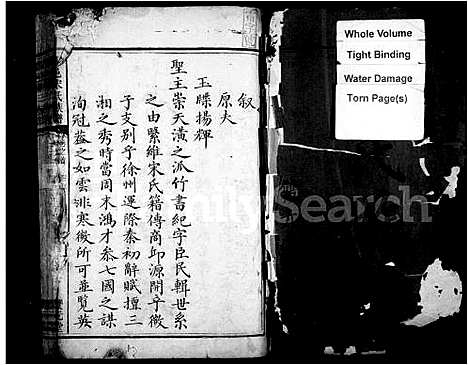 叙
原夫
玉牒揚輝
聖主崇天潢之派竹書紀字臣民輯世系
之由緊維宋氏籍傳商邱源開乎微
子支别乎徐州運際秦初辭賦擅三
湘之秀時當周末鴻才叅七國之謀
洵冠葢之如雲非寒微所可並覧英
Whole Volume
Tight Binding
Water Damage
Torn Page(s)
FamilySearch